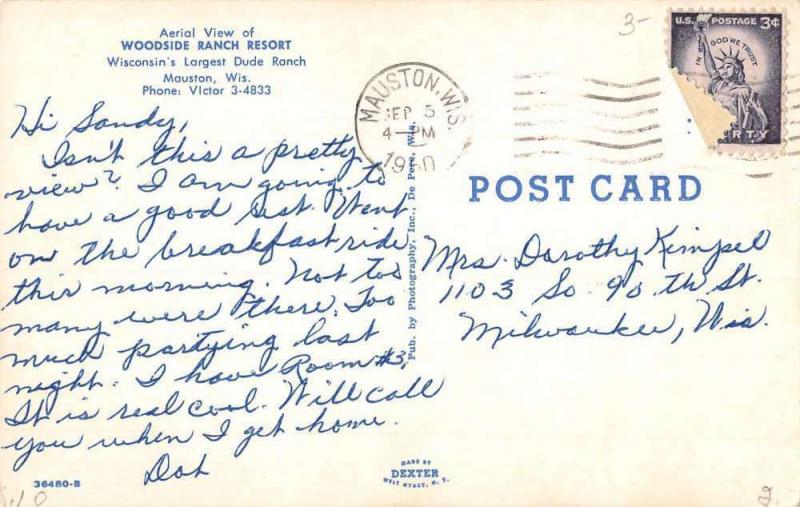 Aerial View of
WOODSIDE RANCH RESORT
Wisconsin's Largest Dude Ranch
Mauston, Wis.
Phone: VIctor 3-4833
Hi Sandy,
Isn't this a pretty
view? I am going to
have a good rest. Went
on the breakfast ride
this morning. Not too
many were there. Too
much partying last
night. I have Room #3.
It is real cool. Will call
you when I get home.
Dot
36480-B
10
Pub. by Photography, Inc., De Pere, Wis.
MADE BY
DEXTER
WEST NYACK, N. Y.
MAUSTON, WIS.
SEP 5
4-PM
1960
3-
U.S. POSTAGE 3¢
IN GOD WE TRUST
RTY
POST CARD
Mrs. Dorothy Kimpel
1103 So. 90 th St.
Milwaukee, Wis.